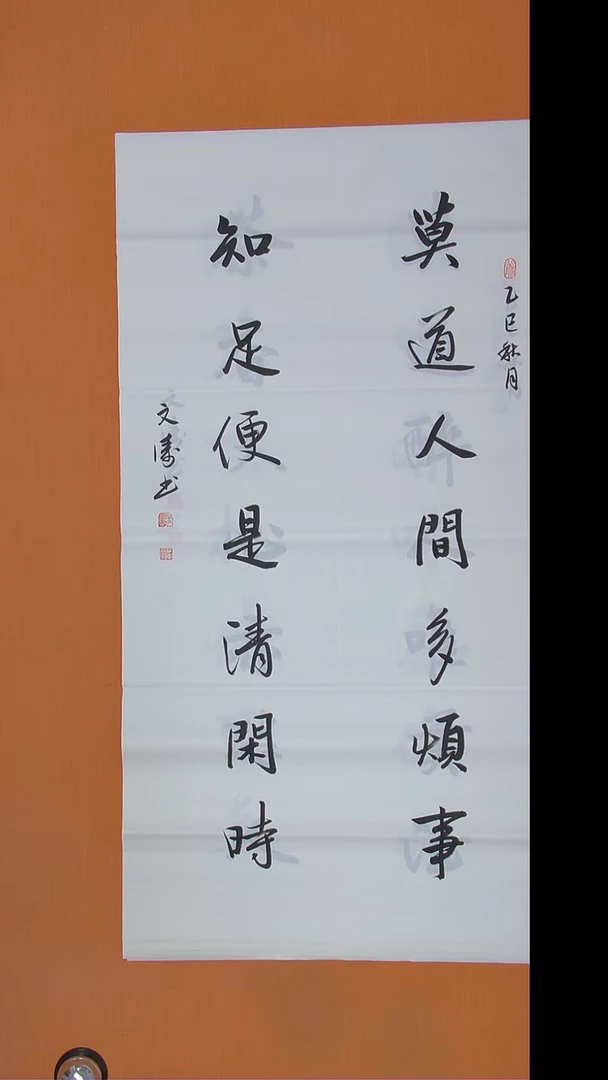 乙巳秋月
莫道人間多煩事
知足便是清閑時
文濤书